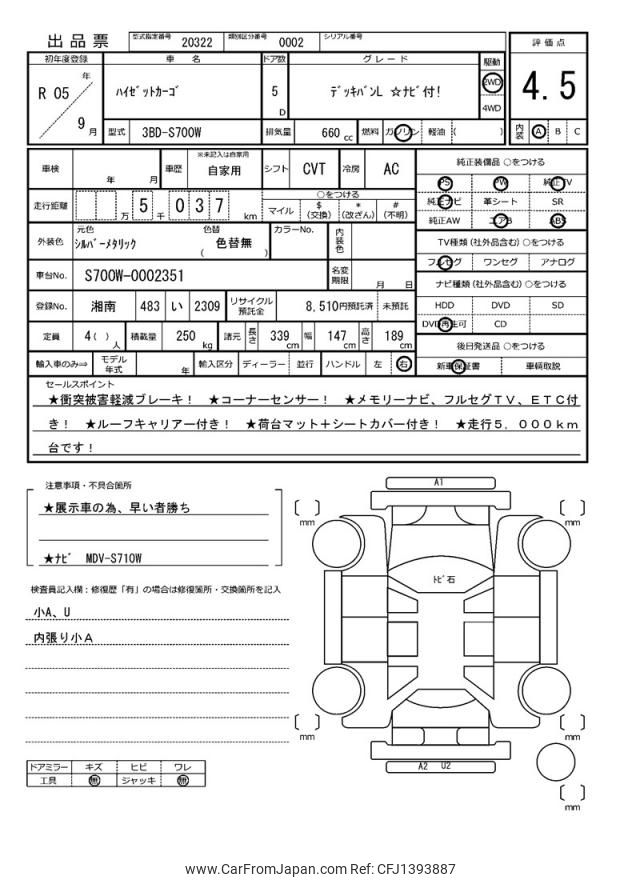 出品票
型式指定番号 20322 類別区分番号 0002 シリアル番号
初年度登録 車 名 ドア数 グレード 駆動 評価点
R 05 年 9 月 ﾊｲｾﾞｯﾄｶｰｺﾞ 5 D ﾃﾞｯｷﾊﾞﾝL ☆ﾅﾋﾞ付! 2WD 4WD 4.5
型式 3BD-S700W 排気量 660 cc 燃料 ガソリン 軽油 ( ) 内装 A B C
車検 年 月 車歴 ※未記入は自家用 自家用 シフト CVT 冷房 AC 純正装備品 ○をつける
PS PW 純正TV
走行距離 万 5 千 0 3 7 km ○をつける
マイル $(交換) *(改ざん) #(不明)
純正ナビ 革シート SR
純正AW エアB ABS
外装色 元色 ｼﾙﾊﾞｰﾒﾀﾘｯｸ 色替 ( 色替無 ) カラーNo. 内装色
TV種類 (社外品含む) ○をつける
フルセグ ワンセグ アナログ
車台No. S700W-0002351 名変期限 月 日
ナビ種類 (社外品含む) ○をつける
登録No. 湘南 483 い 2309 リサイクル預託金 8,510円預託済 未預託
HDD DVD SD
DVD再生可 CD
定員 4( ) 人 積載量 250 kg 諸元 長さ 339 cm 幅 147 cm 高さ 189 cm
後日発送品 ○をつける
輸入車のみ⇒ モデル年式 年 輸入区分 ディーラー 並行 ハンドル 左 右
新車保証書 車輌取説
セールスポイント
★衝突被害軽減ブレーキ! ★コーナーセンサー! ★メモリーナビ、フルセグTV、ETC付
き! ★ルーフキャリアー付き! ★荷台マット+シートカバー付き! ★走行5.000km
台です!
注意事項・不具合箇所
★展示車の為、早い者勝ち
★ﾅﾋﾞ MDV-S710W
検査員記入欄:修復歴「有」の場合は修復箇所・交換箇所を記入
小A、U
内張り小A
ドアミラー キズ ヒビ ワレ
工具 無 ジャッキ 無
A1
mm
mm
ﾄﾋﾞ石
mm
mm
A2 U2
mm
www.CarFromJapan.com Ref: CFJ1393887